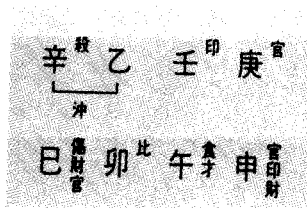 辛殺 乙 壬印 庚官
沖
巳傷財官 卯比 午食才 申官印財